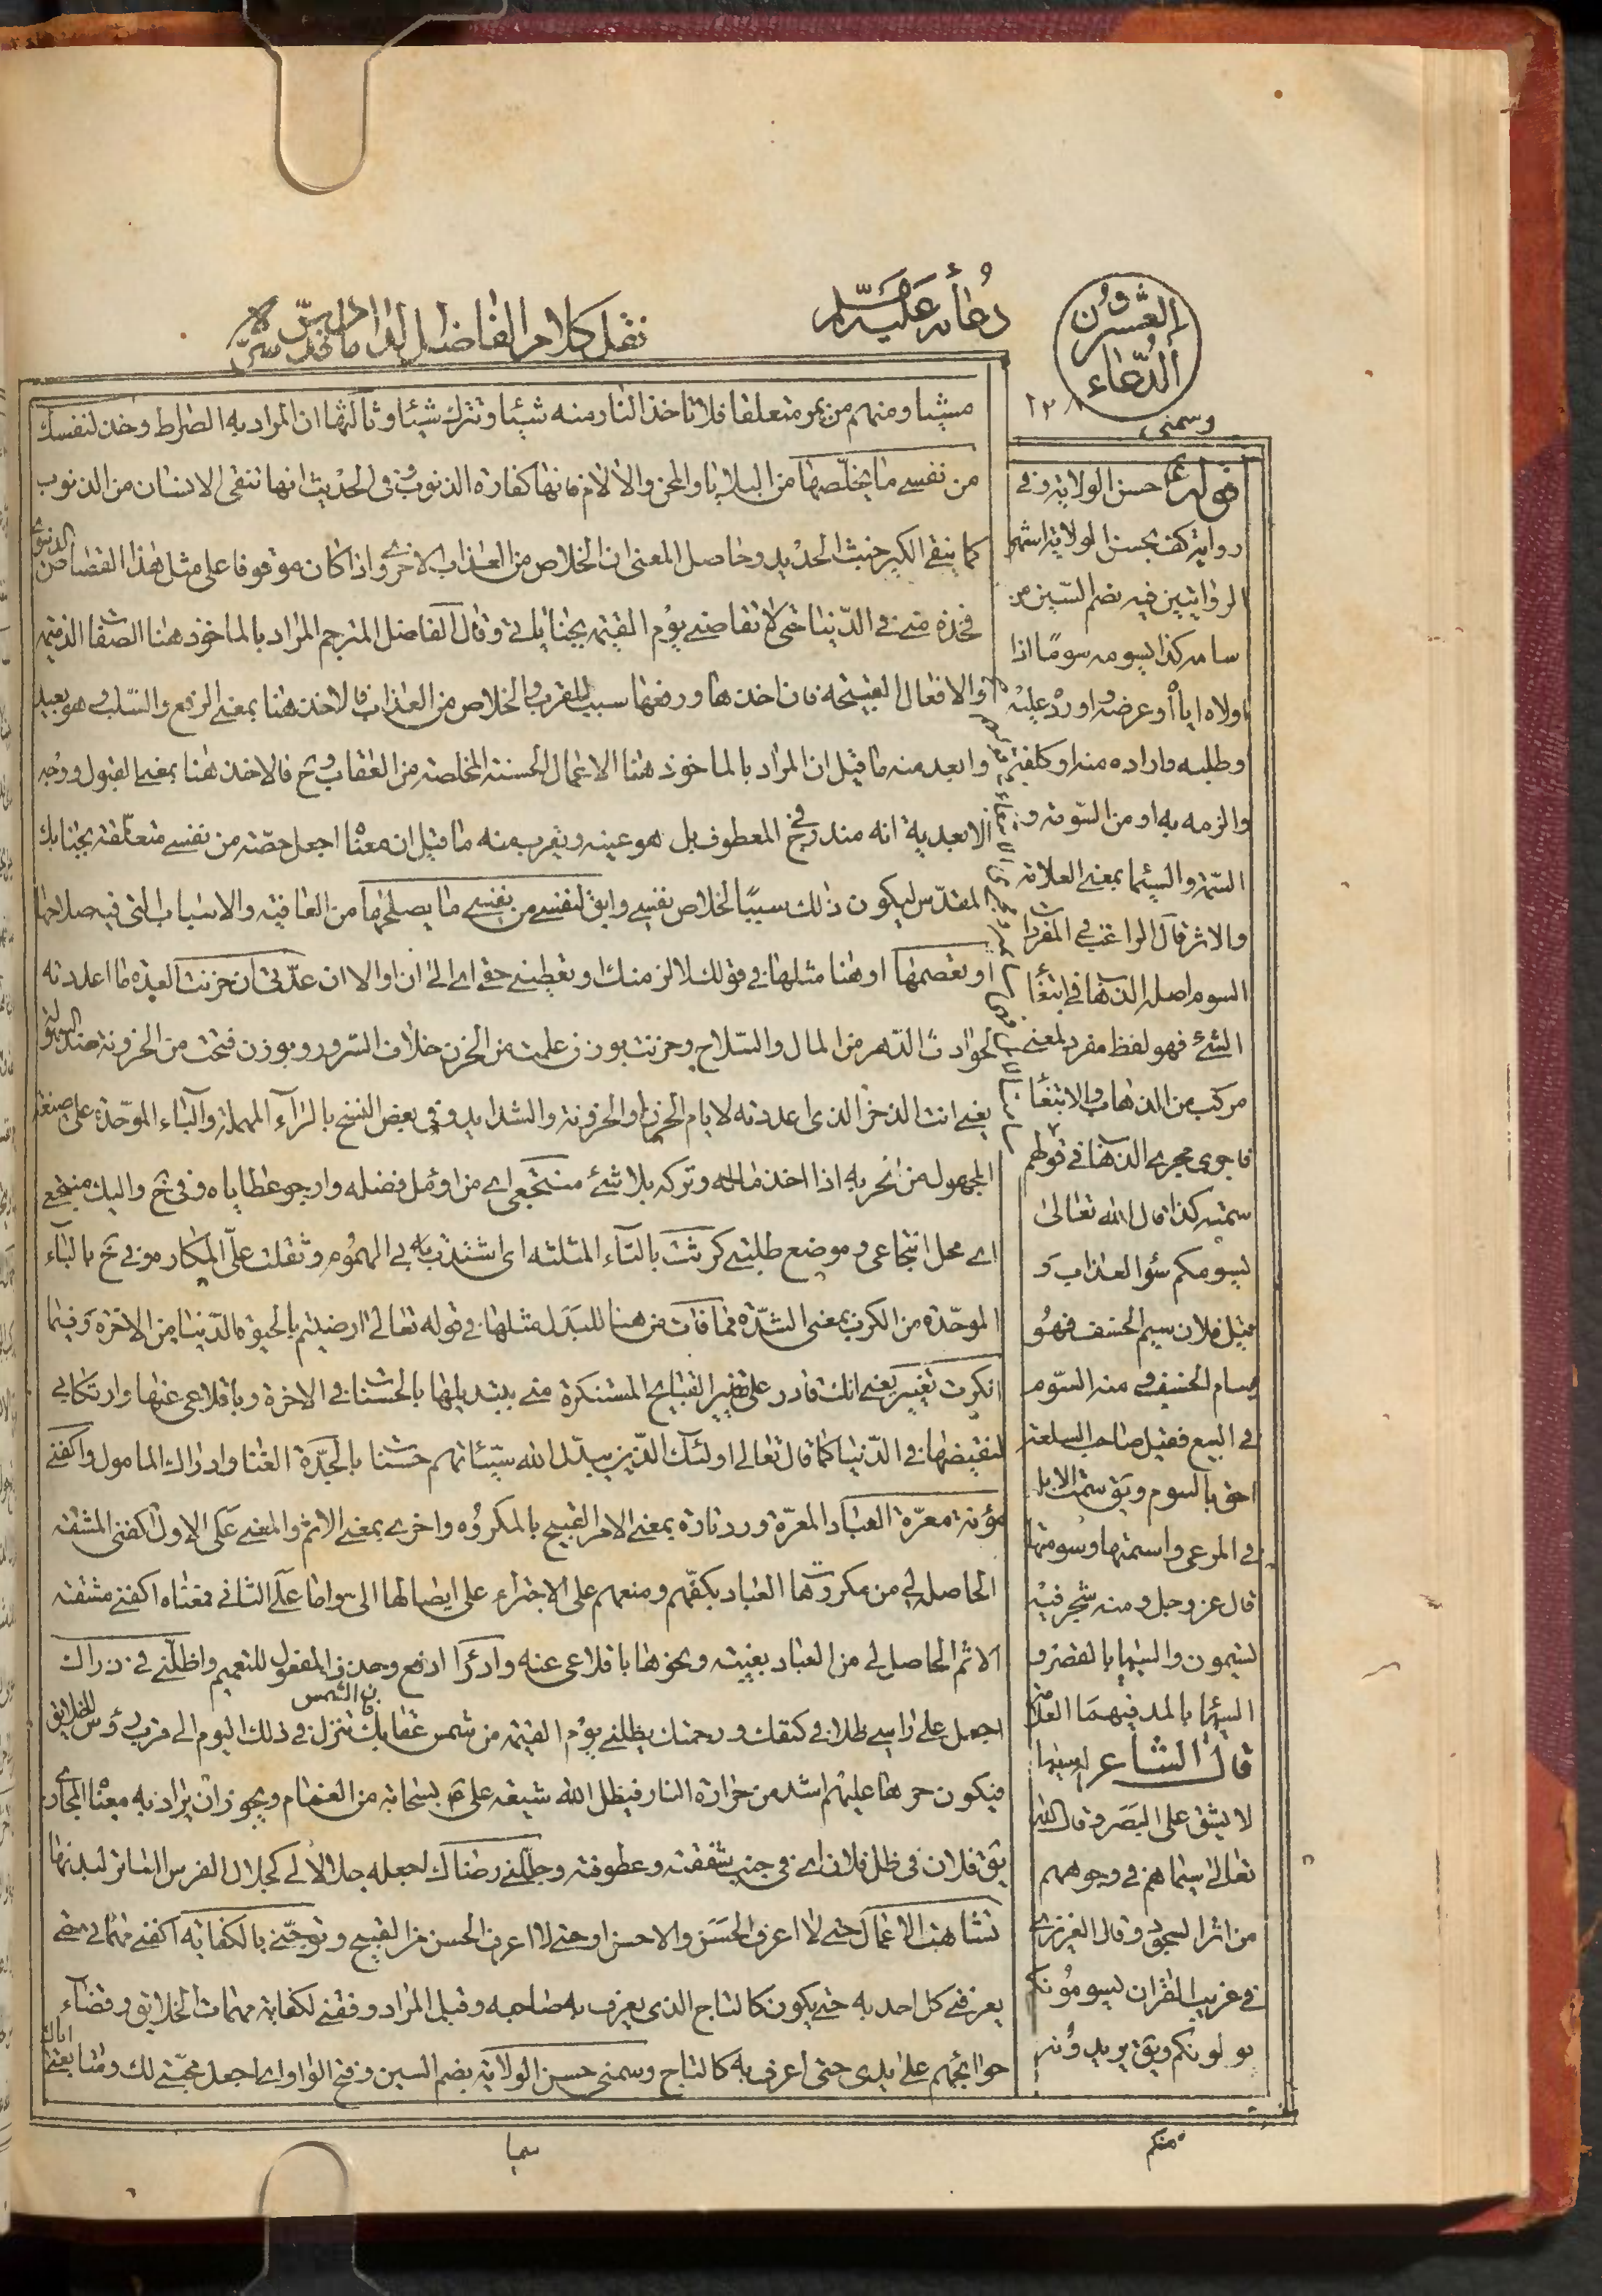 العشرون
الدعاء
دعائه عليه السلام
نقل كلام الفاضل الداماد قدس سره
١٢٨
وسمنى
مشيا ومنهم من يمر متعلقا فلا تاخذ النار منه شيئا وتترك شيئا وثالثها ان المراد به الصراط وخذ لنفسك
من نفسى ما يخلّصها من البلايا والمحن والالام فانها كفارة الذنوب وفى الحديث انها تنقى الانسان من الذنوب
كما ينقى الكير خبث الحديد وحاصل المعنى ان الخلاص من العذاب الاخروى اذا كان موقوفا على مثل هذا القصاص الدنيوى
فخذه منى فى الدّنيا حتى لا تقاصنى يوم القيمة بجناياتى وقال الفاضل المترجم المراد بالماخوذ هنا الصفات الذميمة
والافعال القبيحة فان اخذها ورفعها سبب للقرب والخلاص من العذاب فالاخذ هنا بمعنى الرفع والسّلب وهو بعيد
وابعد منه ما قيل ان المراد بالماخوذ هنا الاعمال الحسنة المخلصة من العقاب وح فالاخذ هنا بمعنى القبول ووجه
الابعدية انه مندرج فى المعطوف بل هو عينه ويقرب منه ما قيل ان معناه اجعل حصّة من نفسى متعلّقة بجنابك
المقدّس ليكون ذلك سببًا لخلاص نفسى وابق لنفسى من نفسى ما يصلحها من العافية والاسباب التى فيه صلاحها
او تعصمها او هنا مثلها فى قولك لالزمنك او تعطينى حقى اى الى ان او الا ان عدّتى ان حزنت العدة ما اعددته
لحوادث الدّهر من المال والسّلاح وحزنت بوزن علمت من الحزن خلاف السّرور وبوزن فتحت من الحزونة ضد السهولة
يعنى انت الذخر الذى اعددته لايام الحزن او الحزونة والشدايد وفى بعض النسخ بالرّاء المهملة والباء الموحّدة على صيغة
المجهول من حربه اذا اخذ ماله وتركه بلا شئ منتجعى اى من اومّل فضله وارجو عطاياه وفى خ واليك منتجعى
اى محل انتجاعى وموضع طلبتى كرثت بالثاء المثلثة اى اشتدت بى الهموم وثقلت علىّ المكاره وفى خ بالباء
الموحّدة من الكرب بمعنى الشدّة مما فات من هنا للبدل مثلها فى قوله تعالى ارضيتم بالحيوة الدّنيا من الاخرة وفيما
انكرت تغيير يعنى انك قادر على تغيير القبايح المستنكرة منى بتبديلها بالحسنات فى الاخرة وباقلاعى عنها وارتكابى
لنقيضها فى الدّنيا كما قال تعالى اولئك الذين يبدّل الله سيّئاتهم حسنات بالجدة الغنا وادراك المامول واكفنى
مؤنة معرّة العباد المعرّة وردت تارة بمعنى الامر القبيح بالمكروه واخرى بمعنى الاثم والمعنى على الاول اكفنى المشقة
الحاصلة لى من مكروهات العباد بكفّهم ومنعهم على الاجتراء على ايصالها الىّ واما على الثانى فمعناه اكفنى مشقة
الاثم الحاصل لى من العباد بغيبته ونحوها باقلاعى عنه وادرأ ادفع وحذف المفعول للتعميم واظلّنى فى ذراك
اجعل على راسى ظلا فى كنفك ورحمتك يظلنى يوم القيمة من شمس عقابك فان الشمس تنزل فى ذلك اليوم الى قرب رؤس الخلايق
فيكون حرها عليهم اشد من حرارة النار فيظل الله شيعة على ع بسحابة من الغمام ويجوز ان يراد به معناه المجازى
يق فلان فى ظل فلان اى فى جنب شفقته وعطوفته وجللنى رضاك اجعله جلالا لى كجلال الفرس الساتر لبدنها
تشابهت الاعمال حتى لا اعرف الحسن والاحسن او حتى لا اعرف الحسن من القبيح وتوجّنى بالكفاية اكفنى مهماتى حتى
يعرفنى كل احد به حتى يكون كالتاج الذى يعرف به صاحبه وقيل المراد وفقنى لكفاية مهمات الخلايق وقضاء
حوائجهم على يدى حتى اعرف به كالتاج وسمنى حسن الولاية بضم السين وفتح الواو اى اجعل محبّتى لك ومتابعتى
قوله ع حسن الولاية وفى
رواية كف بحسن الولاية اشهر
الروايتين فيه بضم السّين من
سامه كذا يسومه سومًا اذا
اولاه اياه او عرضه او رد عليه
وطلبه واراده منه او كلفه
والزمه به او من السّومة و
السّمة والسيما بمعنى العلامة
والاثر قال الراغب فى المفردات
السوم اصله الذهاب فى ابتغاء
الشئ فهو لفظ مفرد لمعنى
مركب من الذهاب والابتغاء
فاجرى مجرى الذهاب فى قولهم
سمته كذا قال الله تعالى
يسومكم سوء العذاب و
قيل فلان سيم الخسف فهو
يسام الخسف ومنه السّوم
فى البيع فقيل صاحب السلعة
احق بالسوم ويق سمت الابل
فى المرعى واسمتها وسومتها
قال عز وجل ومنه شجر فيه
تسيمون والسيما بالقصر و
السيماء بالمد فيهما العلامة
قال الشاعر له سيما
لا يشق على البصر وقال الله
تعالى سيماهم فى وجوههم
من اثر السجود وقال العزيزى
فى غريب القران يسومونكم
يولونكم ويق يريدونه
منكم
سيما